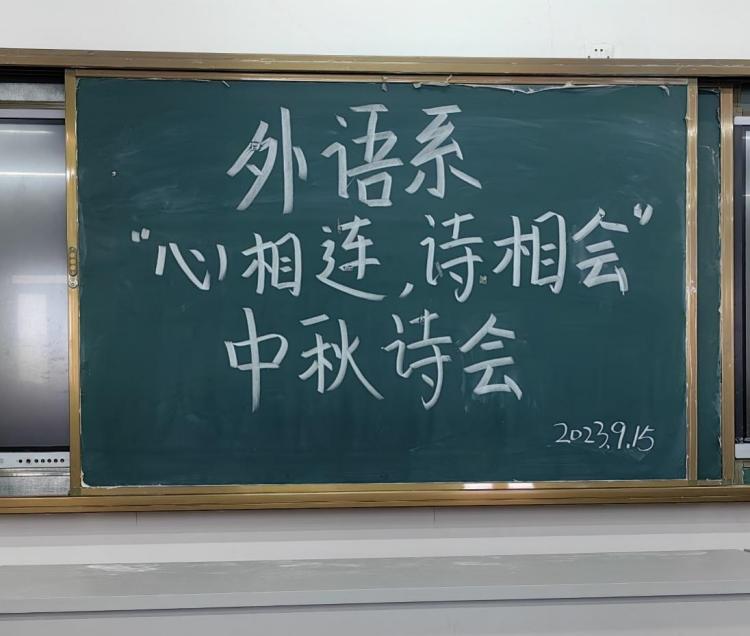 外语系
“心相连,诗相会”
中秋诗会
2023.9.15